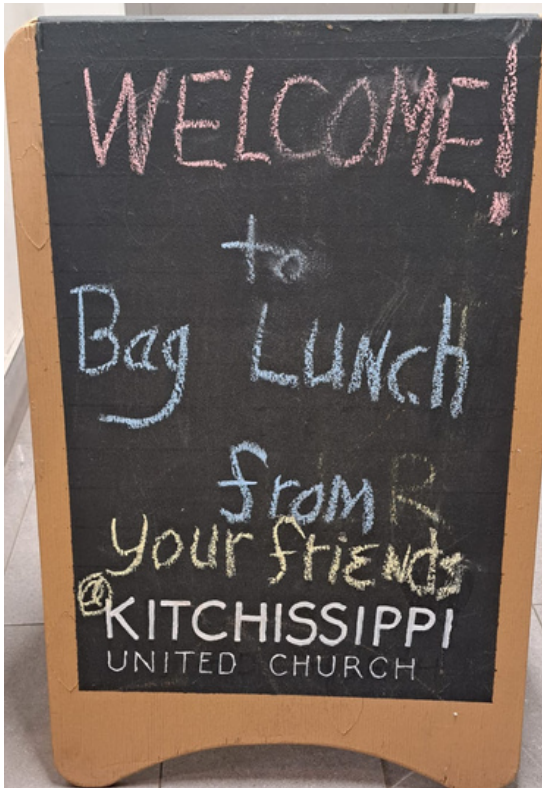 WELCOME!
to
Bag LUNch
from R
your friENds
@KITCHISSIPPI
UNITED CHURCH